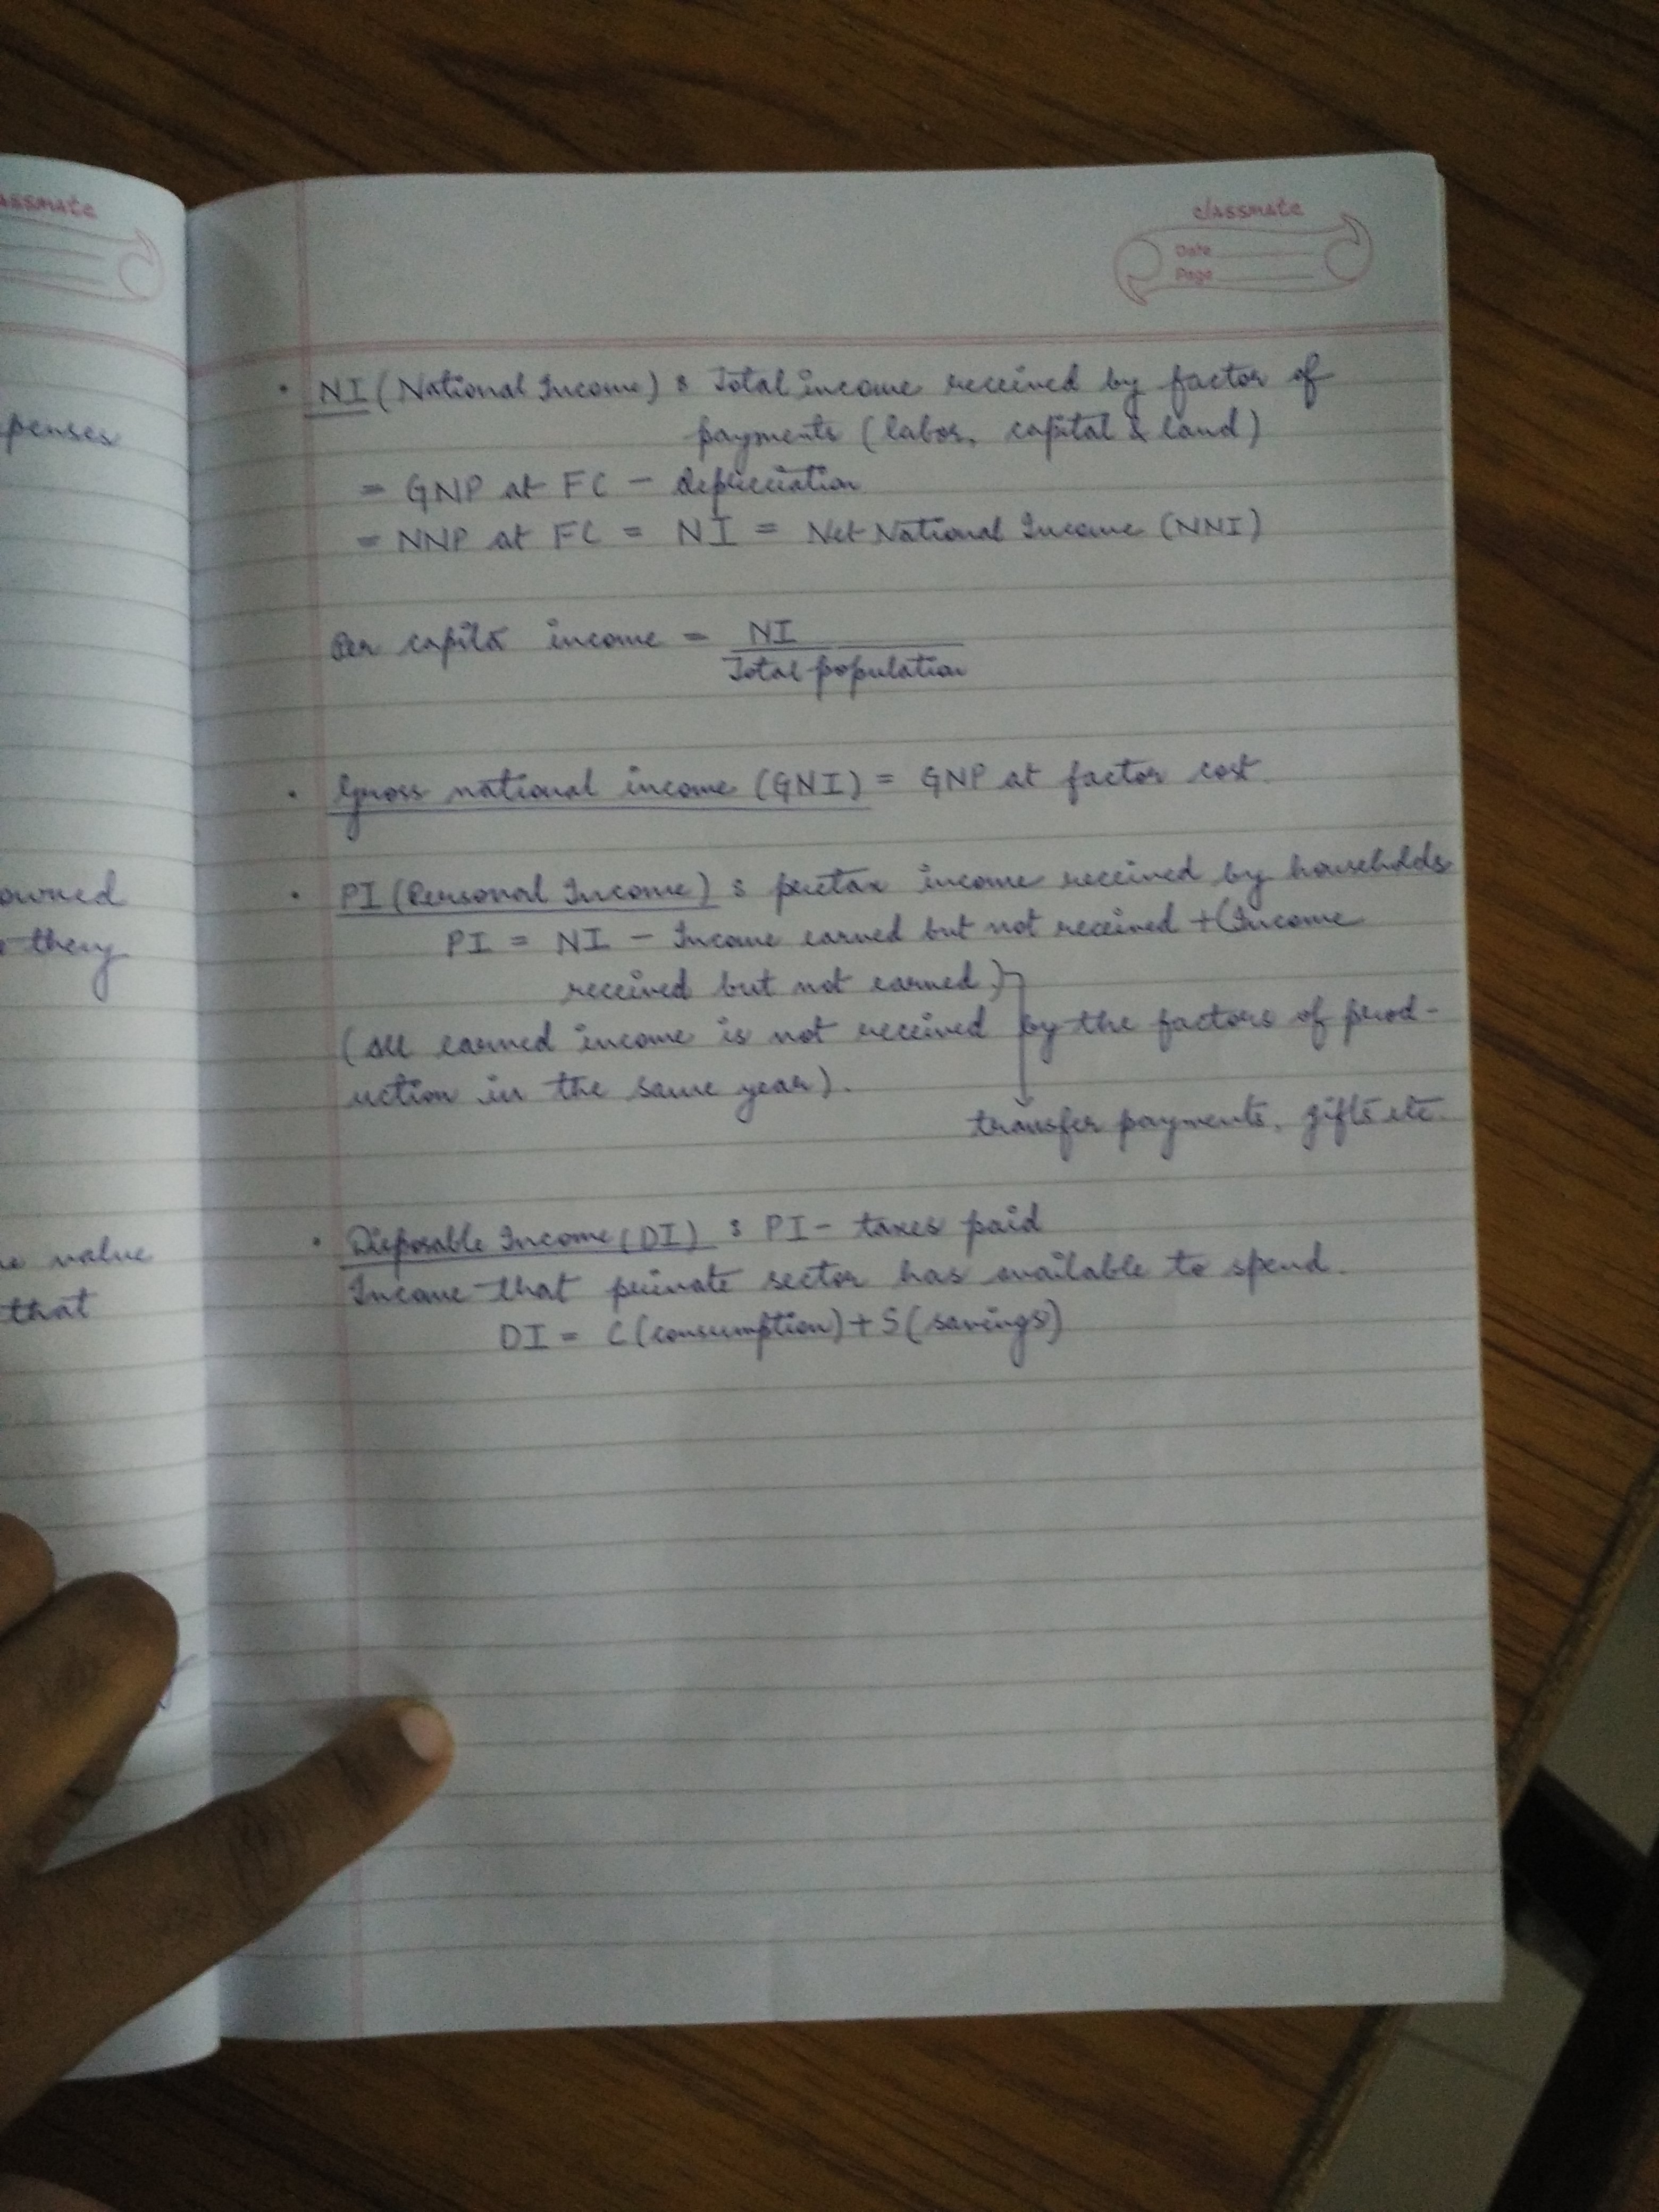 assmate
penses
owned
they
value
that
classmate
Date
Page
• NI (National Income) : Total income received by factor of
payments (labor, capital & land)
= GNP at FC - depreciation
= NNP at FC = NI = Net National Income (NNI)
Per capita income = NI
Total population
• Gross national income (GNI) = GNP at factor cost.
• PI (Personal Income) : pretax income received by households
PI = NI - Income earned but not received + (Income
received but not earned)
(All earned income is not received by the factors of prod-
uction in the same year).
transfer payments, gifts etc.
• Disposable Income (DI) : PI - taxes paid
Income that private sector has available to spend.
DI = C (consumption) + S (savings)